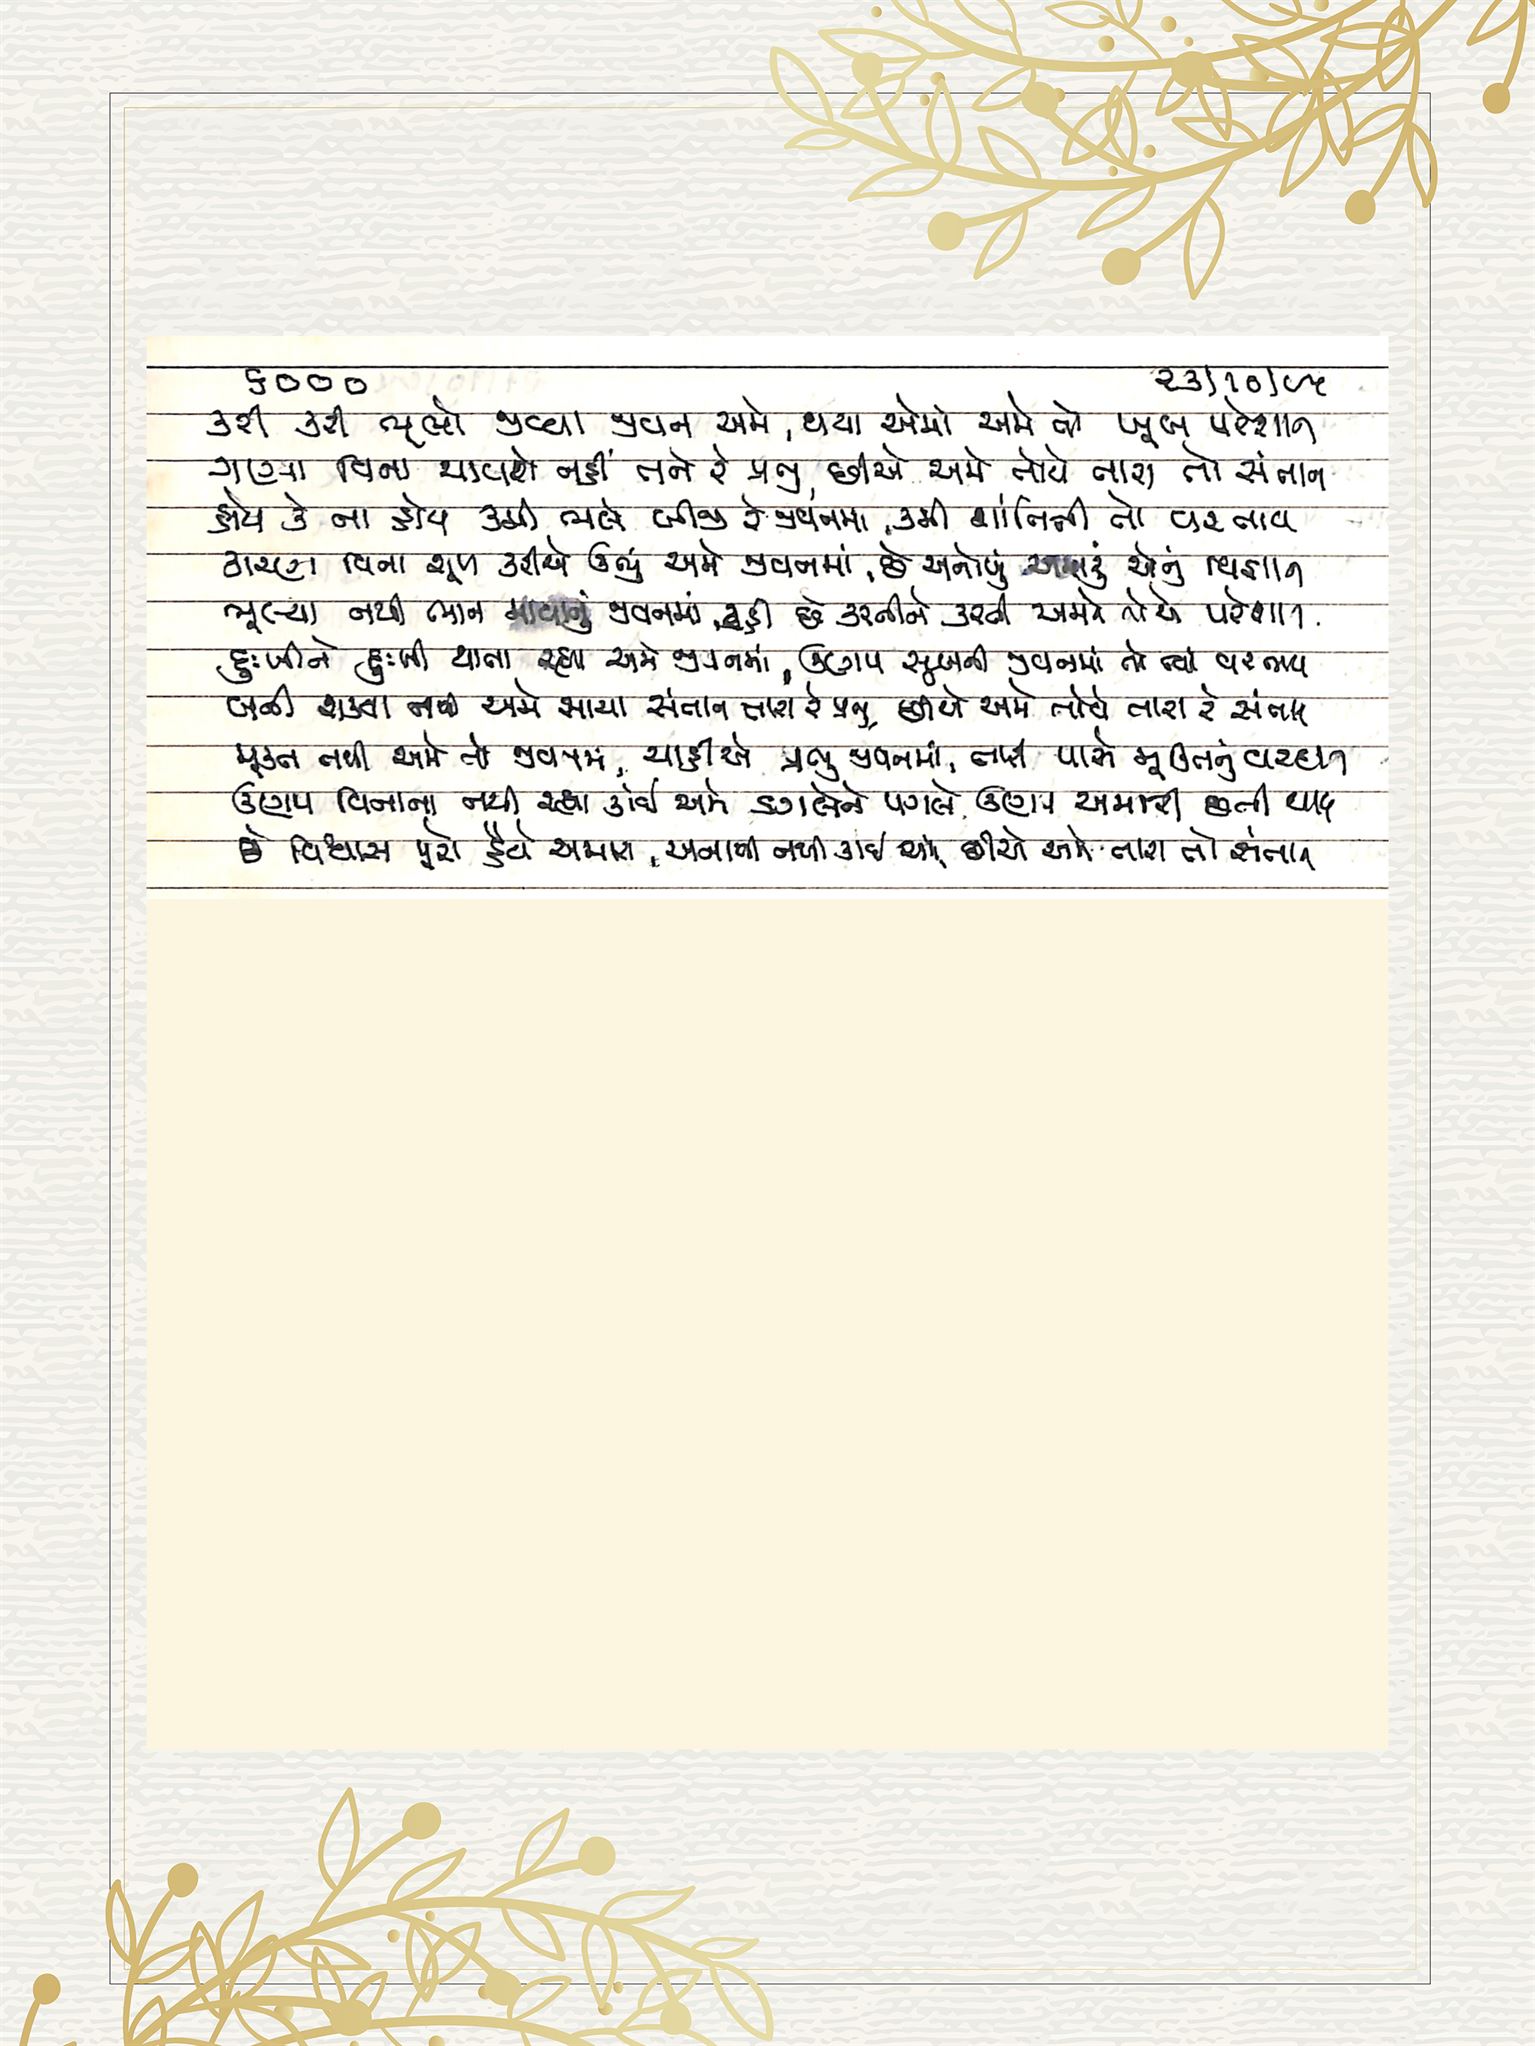 ૬૦૦૦ ૨૩/૧૦/૯૫
કરી કરી ભૂલો જીવ્યા જીવન અમે, થયા એમાં અમે તો ખૂબ પરેશાન
ગણ્યા વિના ચાલશે નહીં તને રે પ્રભુ, છીએ અમે તોયે તારા તો સંતાન
હોય કે ના હોય કમી ભલે બીજી રે જીવનમાં, કમી શાંતિની તો વરતાય
કારણ વિના શરૂ કરીએ અમે જીવનમાં, છે અનોખું એનું વિજ્ઞાન
ભૂલ્યા નથી ભાન જીવનમાં, રહી છે કરનીને કરની અમારી તોયે પરેશાન.
દુઃખીને દુઃખી થાતા રહ્યા અમે જીવનમાં, ઉણપ સુખની જીવનમાં તો ત્યાં વરતાય
બની શક્યા નથી અમે સાચા સંતાન તારા રે પ્રભુ, છીએ અમે તોયે તારા રે સંતાન
મુક્ત નથી અમે તો જીવનમાં, ચાહીએ પ્રભુ જીવનમાં, તારી પાસે મુક્તિનું વરદાન
ઉણપ વિનાના નથી રહ્યા કોઈ અમે ડગલેને પગલે ઉણપ અમારી છતી થાય
છે વિશ્વાસ પૂરો હૈયે અમારા, અનાથી નથી કાંઈ અમે, છીએ અમે તારા તો સંતાન